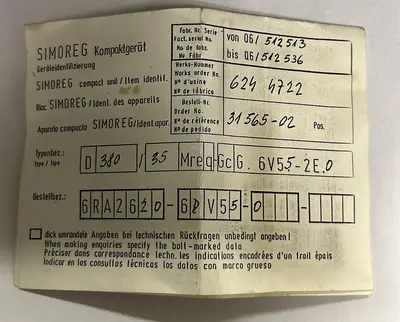 SIMOREG Kompaktgerät
Geräteidentifizierung
SIMOREG compact unit / Item identif.
Bloc SIMOREG / Ident. des appareils
Aparato compacto SIMOREG / Ident.apar.
Fabr. Nr. Serie
Fact. serial No.
No de fabr.
No Fabr.
von Q6/ 512513
bis Q6/ 512536
Werks-Nummer
Works order No.
N° d'usine
N° de fábrica
624 4722
Bestell-Nr.
Order No.
N° de référence
N° de pedido
31565-02 Pos.
Typenbez.:
type / tipo
D 380 / 35 Mreq-GcG. 6V55-2E.0
Bestellbez.:
6RA2620-6 V55-0
dick umrandete Angaben bei technischen Rückfragen unbedingt angeben!
When making enquiries specify the ball-marked data
Préciser dans correspondance techn. les indications encadrées d'un trait épais
Indicar en las consultas técnicas los datos con marco grueso